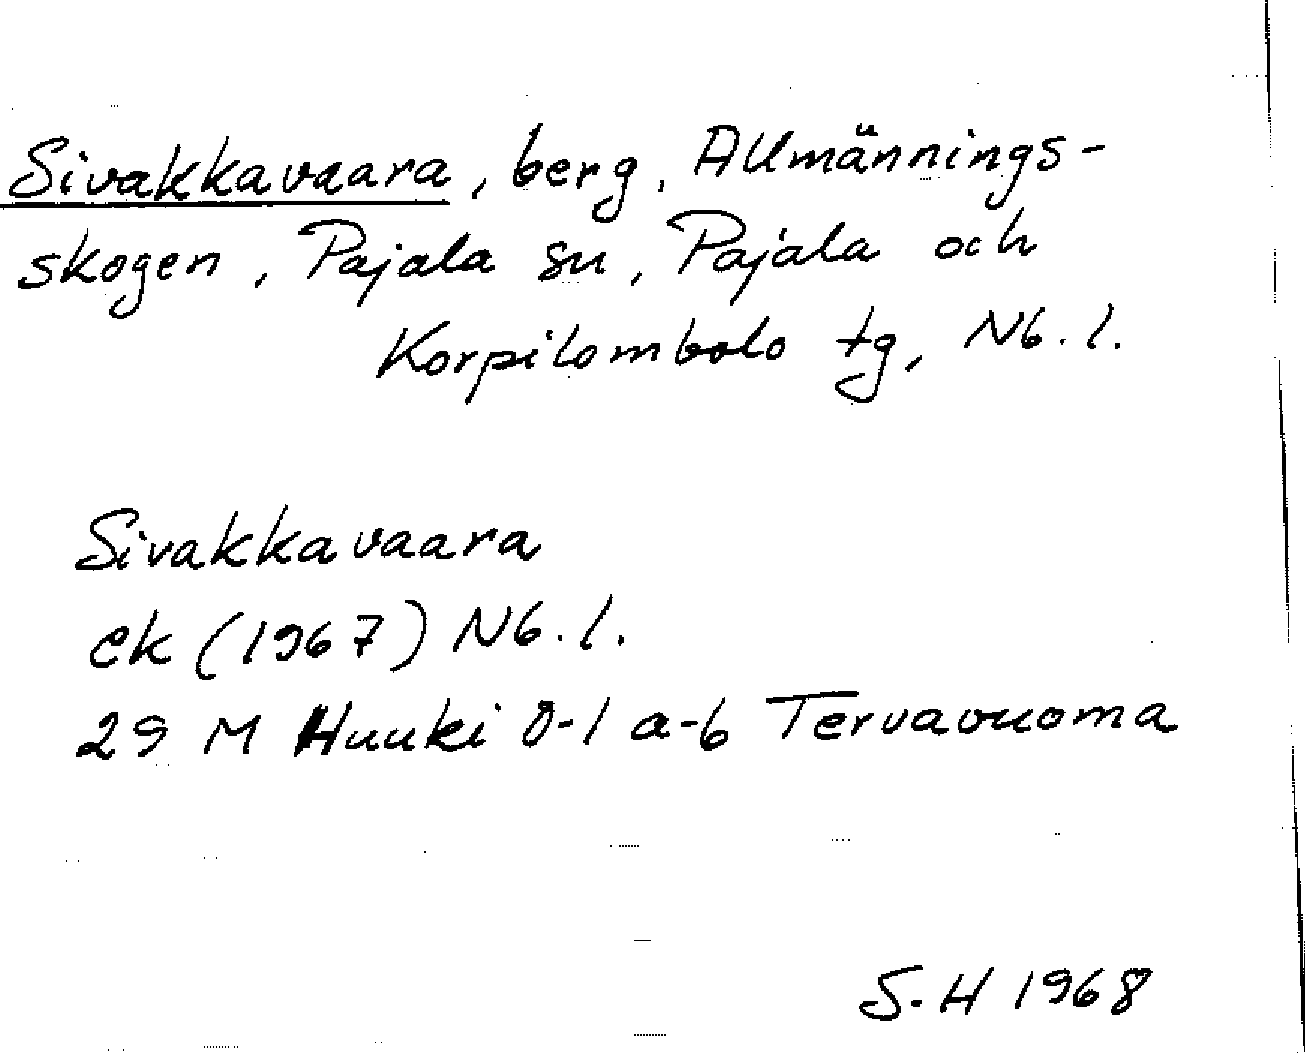 Sivakkavaara, berg, Allmännings-
skogen, Pajala sn, Pajala och
Korpilombolo tg, Nb. l.
Sivakkavaara
ek (1967) Nb. l.
29 M Huuki 0-1 a-b Tervavuoma
S. H 1968